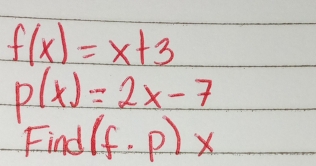 f(x) = x+3
p(x) = 2x - 7
Find (f . p) x